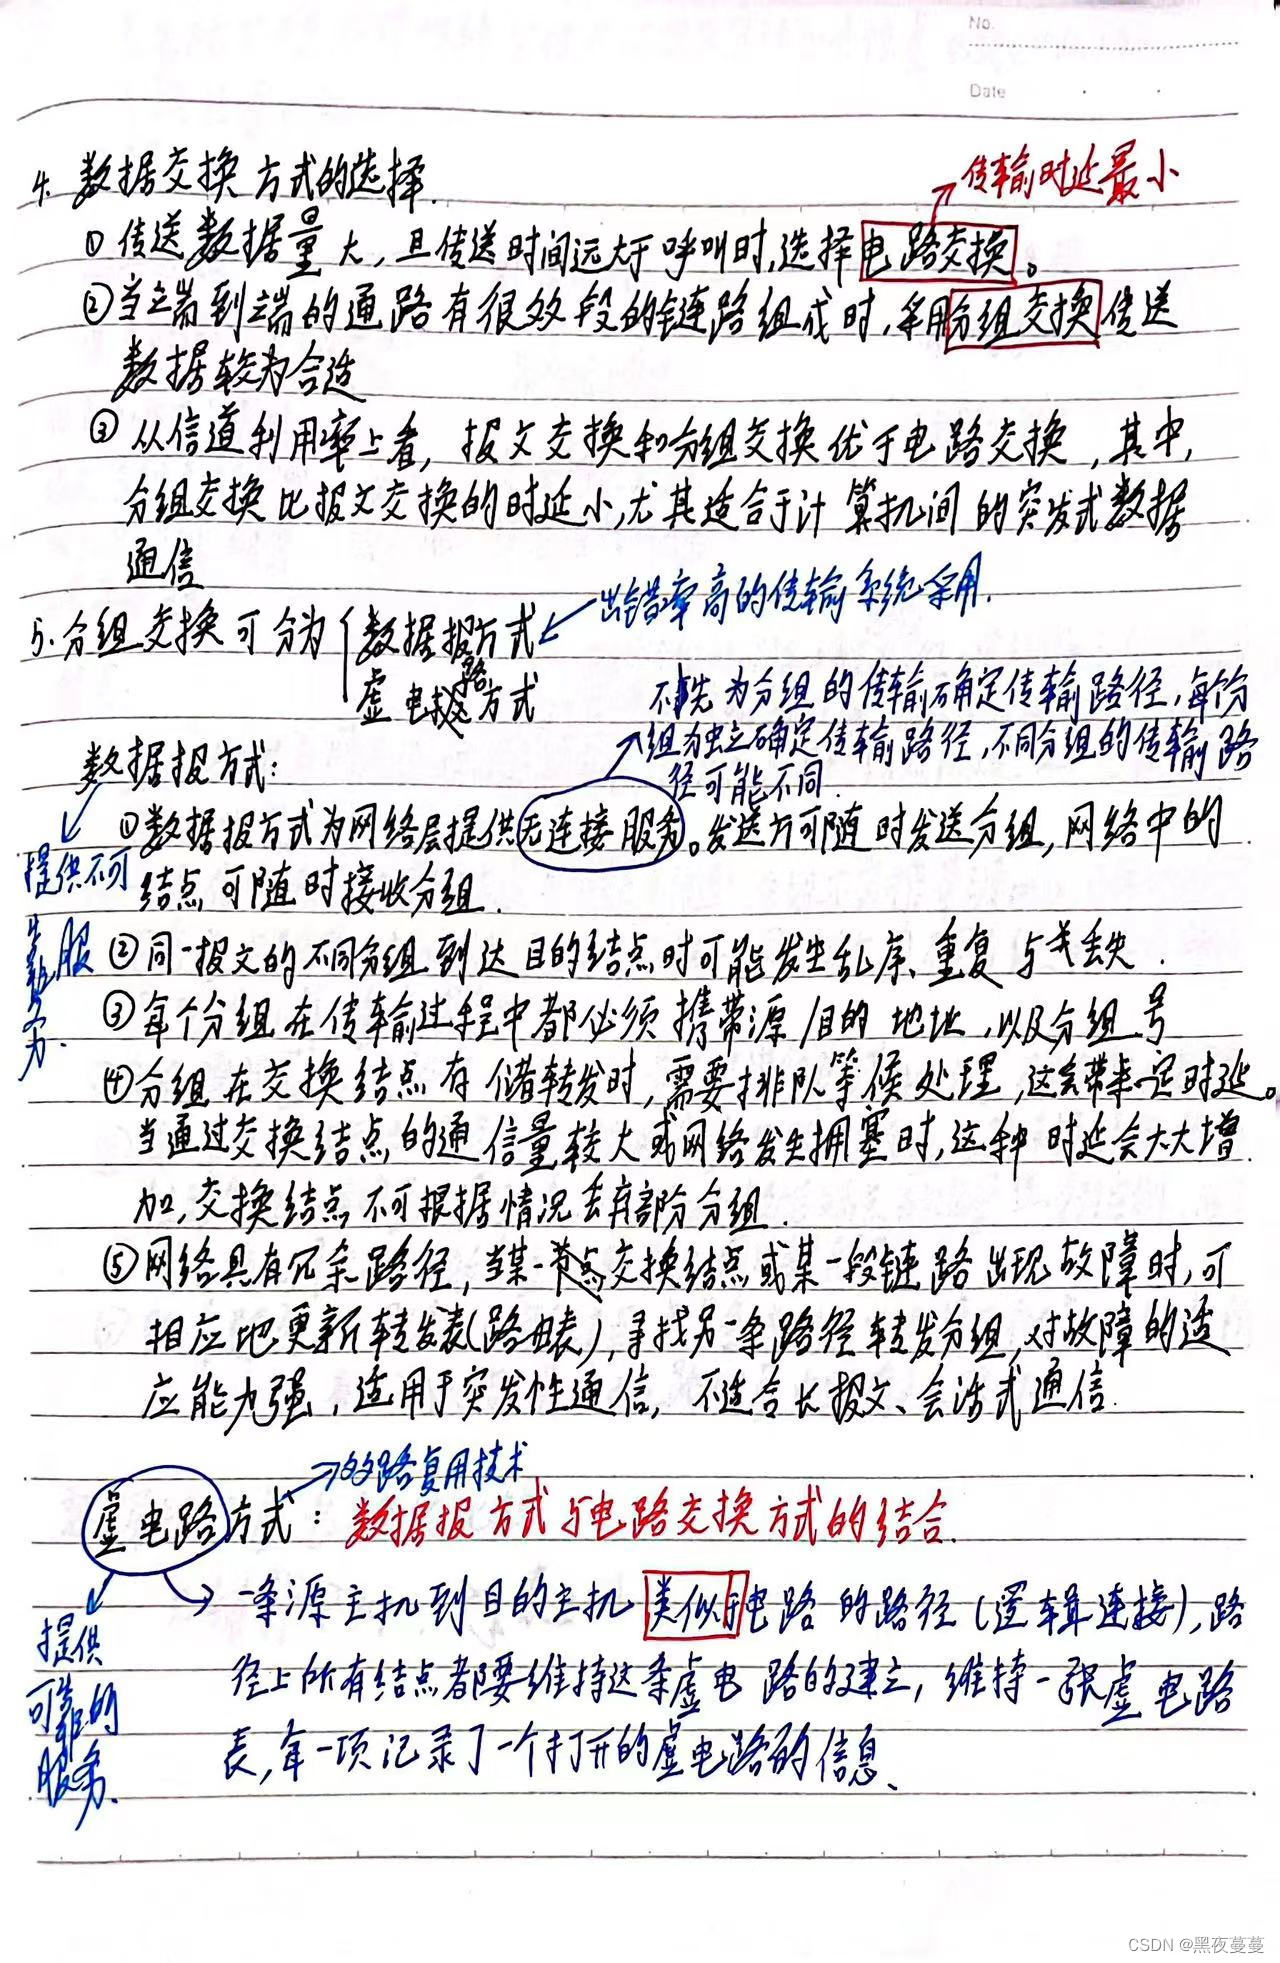 No.
Date
4. 数据交换方式的选择.
传输时延最小
① 传送数据量大,且传送时间远大于呼叫时,选择电路交换。
②当端到端的通路有很多段的链路组成时,采用分组交换传送
数据较为合适
③ 从信道利用率上看, 报文交换和分组交换优于电路交换,其中,
分组交换比报文交换的时延小,尤其适合于计算机间的突发式数据
通信
出错率高的传输系统采用.
5.分组交换可分为{数据报方式
虚电路方式
不预先为分组的传输确定传输路径,每个分
组独立确定传输路径,不同分组的传输路
径可能不同.
数据报方式:
①数据报方式为网络层提供无连接服务。发送方可随时发送分组,网络中的
结点可随时接收分组.
提供不可
靠服
务.
②同一报文的不同分组到达目的结点时可能发生乱序、重复与丢失.
③每个分组在传输过程中都必须携带源/目的地址,以及分组号
④分组在交换结点存储转发时,需要排队等候处理,这会带来一定时延。
当通过交换结点的通信量较大或网络发生拥塞时,这种时延会大大增
加,交换结点不可根据情况丢弃部分分组.
⑤网络具有冗余路径,当某一交换结点或某一段链路出现故障时,可
相应地更新转发表(路由表),寻找另一条路径转发分组,对故障的适
应能力强,适用于突发性通信, 不适合长报文、会话式通信.
路复用技术
虚电路方式: 数据报方式与电路交换方式的结合.
一条源主机到目的主机类似于电路的路径(逻辑连接),路
径上所有结点都要维持这条虚电路的建立,维持一张虚电路
表,每一项记录了一个打开的虚电路的信息、
提供
可靠的
服务.
CSDN @黑夜蔓蔓